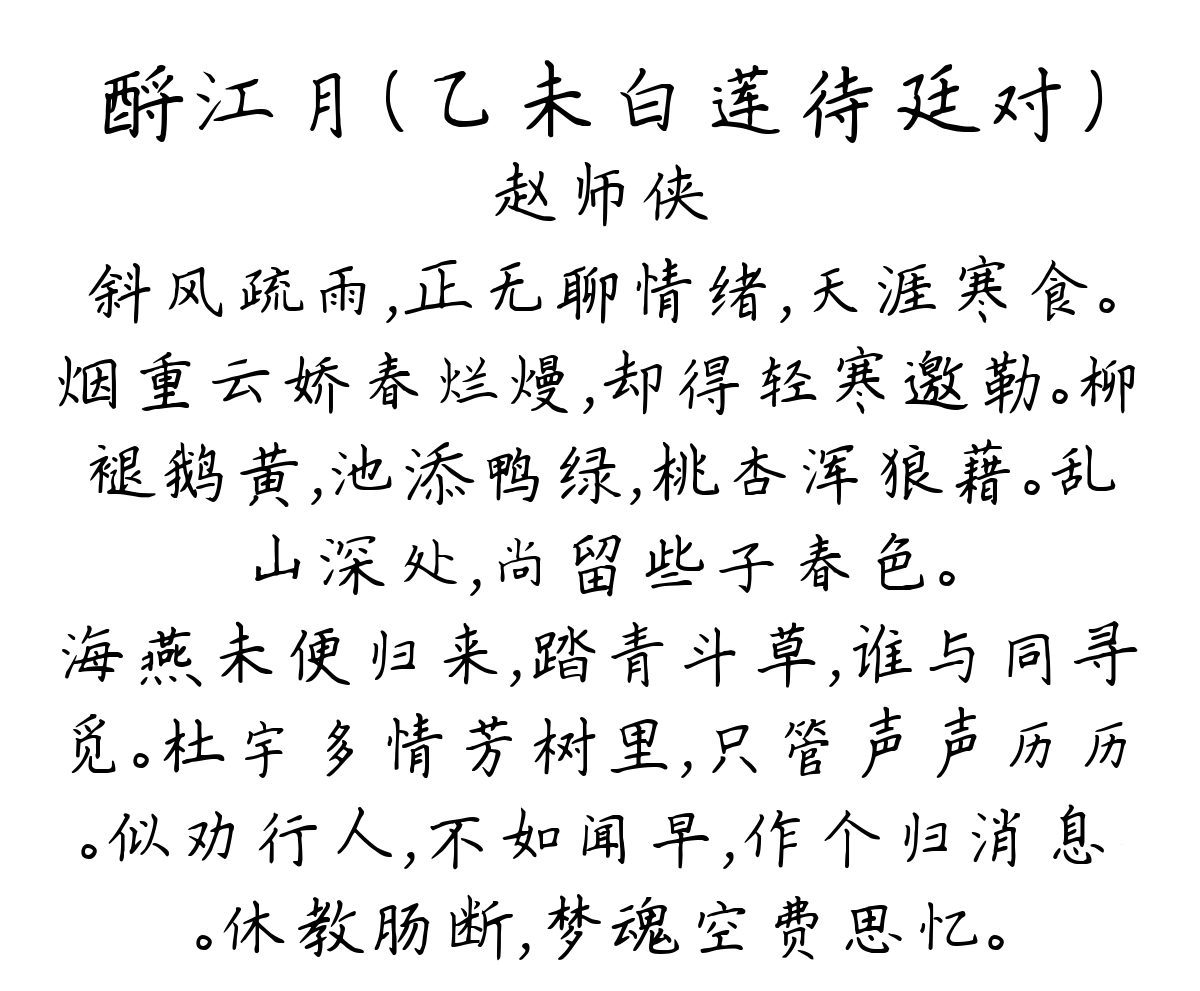 酹江月(乙未白莲待廷对)
赵师侠
斜风疏雨,正无聊情绪,天涯寒食。
烟重云娇春烂熳,却得轻寒邀勒。柳
褪鹅黄,池添鸭绿,桃杏浑狼藉。乱
山深处,尚留些子春色。
海燕未便归来,踏青斗草,谁与同寻
觅。杜宇多情芳树里,只管声声历历
。似劝行人,不如闻早,作个归消息
。休教肠断,梦魂空费思忆。